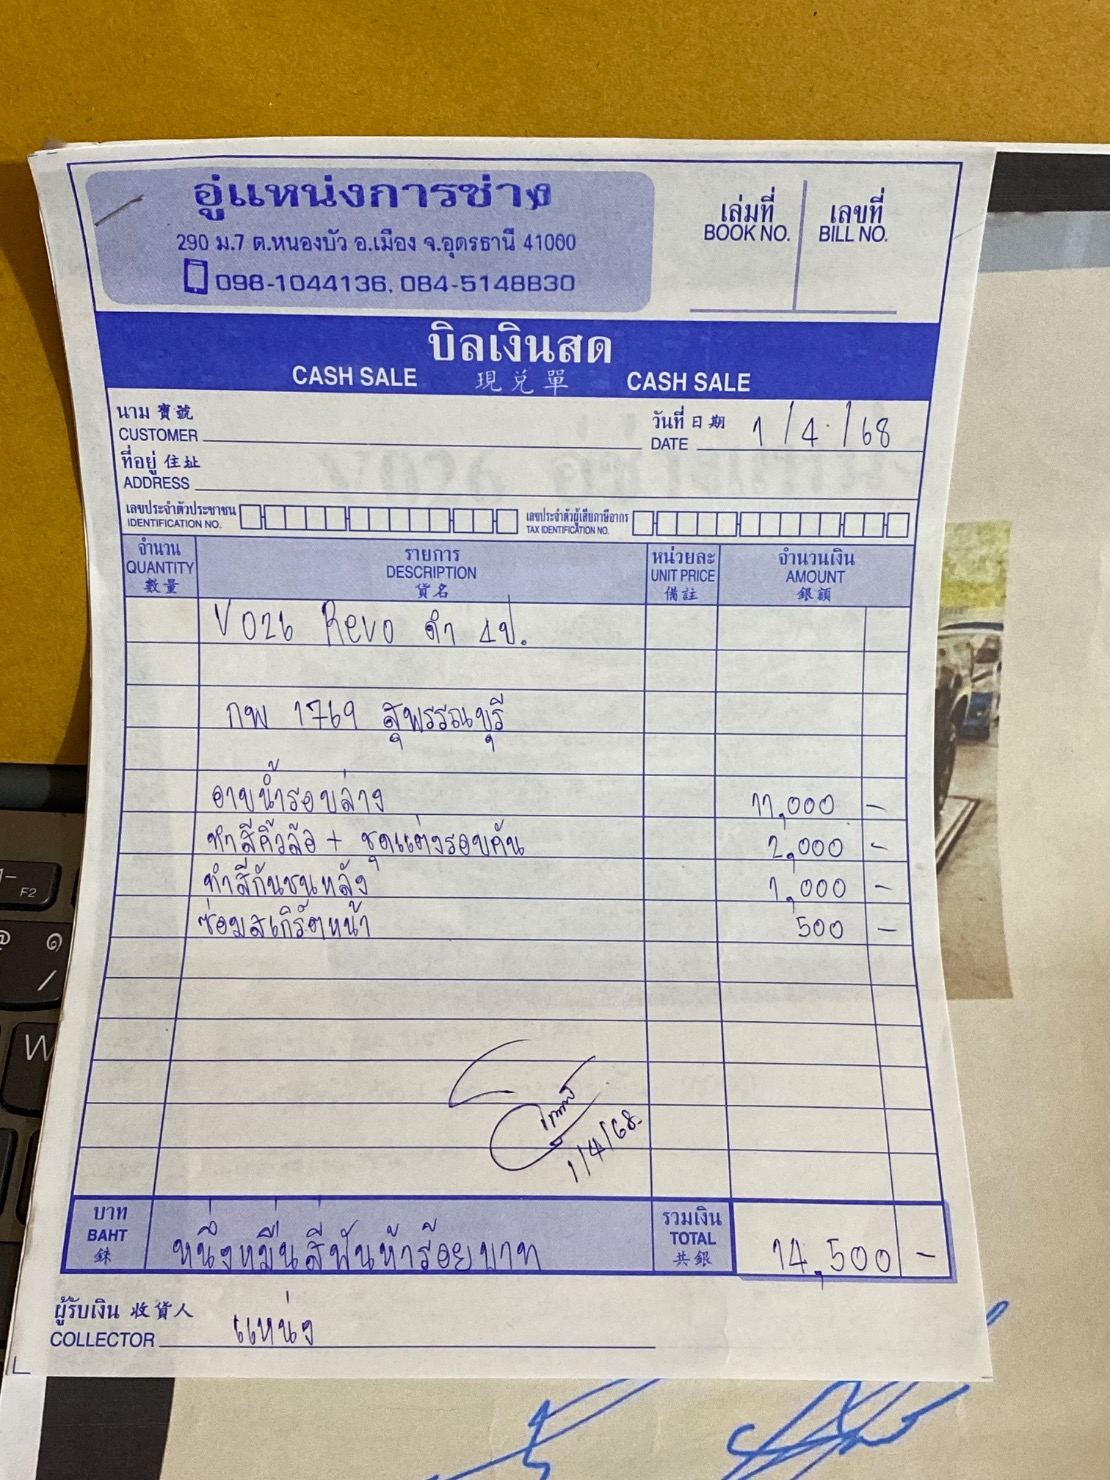 อู่แหน่งการช่าง
290 ม.7 ต.หนองบัว อ.เมือง จ.อุดรธานี 41000
098-1044136, 084-5148830
เล่มที่
BOOK NO.
เลขที่
BILL NO.
บิลเงินสด
CASH SALE 現兌單 CASH SALE
นาม 寶號
CUSTOMER
วันที่ 日期
DATE 1/4/68
ที่อยู่ 住址
ADDRESS
เลขประจำตัวประชาชน
IDENTIFICATION NO.
เลขประจำตัวผู้เสียภาษีอากร
TAX IDENTIFICATION NO.
จำนวน รายการ หน่วยละ จำนวนเงิน
QUANTITY DESCRIPTION UNIT PRICE AMOUNT
數量 貨名 備註 銀額
V026 Revo ดำ 4ป.
กพ 1769 สุพรรณบุรี
อาบน้ำรอบล่าง 11,000 -
ทำสีคิ้วล้อ + ชุดแต่งรอบคัน 2,000 -
ทำสีกันชนหลัง 1,000 -
ซ่อมสเกิร์ตหน้า 500 -
1/4/68
บาท
BAHT
銖
หนึ่งหมื่นสี่พันห้าร้อยบาท
รวมเงิน
TOTAL
共銀
14,500 -
ผู้รับเงิน 收貨人
COLLECTOR แหน่ง
F2
W